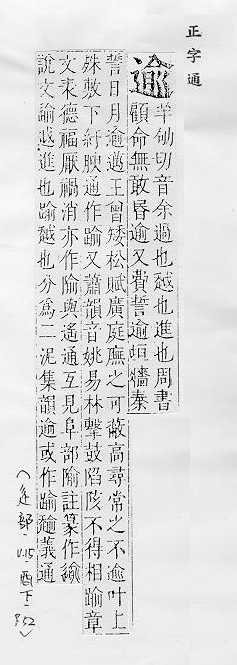 正字通
逾
羊劬切音余過也越也進也周書
顧命無敢昬逾又費誓逾垣牆秦
誓日月逾邁王曾矮松賦廣庭廡之可蔽高尋常之不逾叶上
殊敷下紆腴通作踰又蕭韻音姚易林擊鼓陷陂不得相踰章
文來德福厭禍消亦作隃與遙通互見阜部隃註篆作
說文逾越進也踰越也分爲二泥集韻逾或作踰義通
〈辵部-V.15-酉下-P.52〉